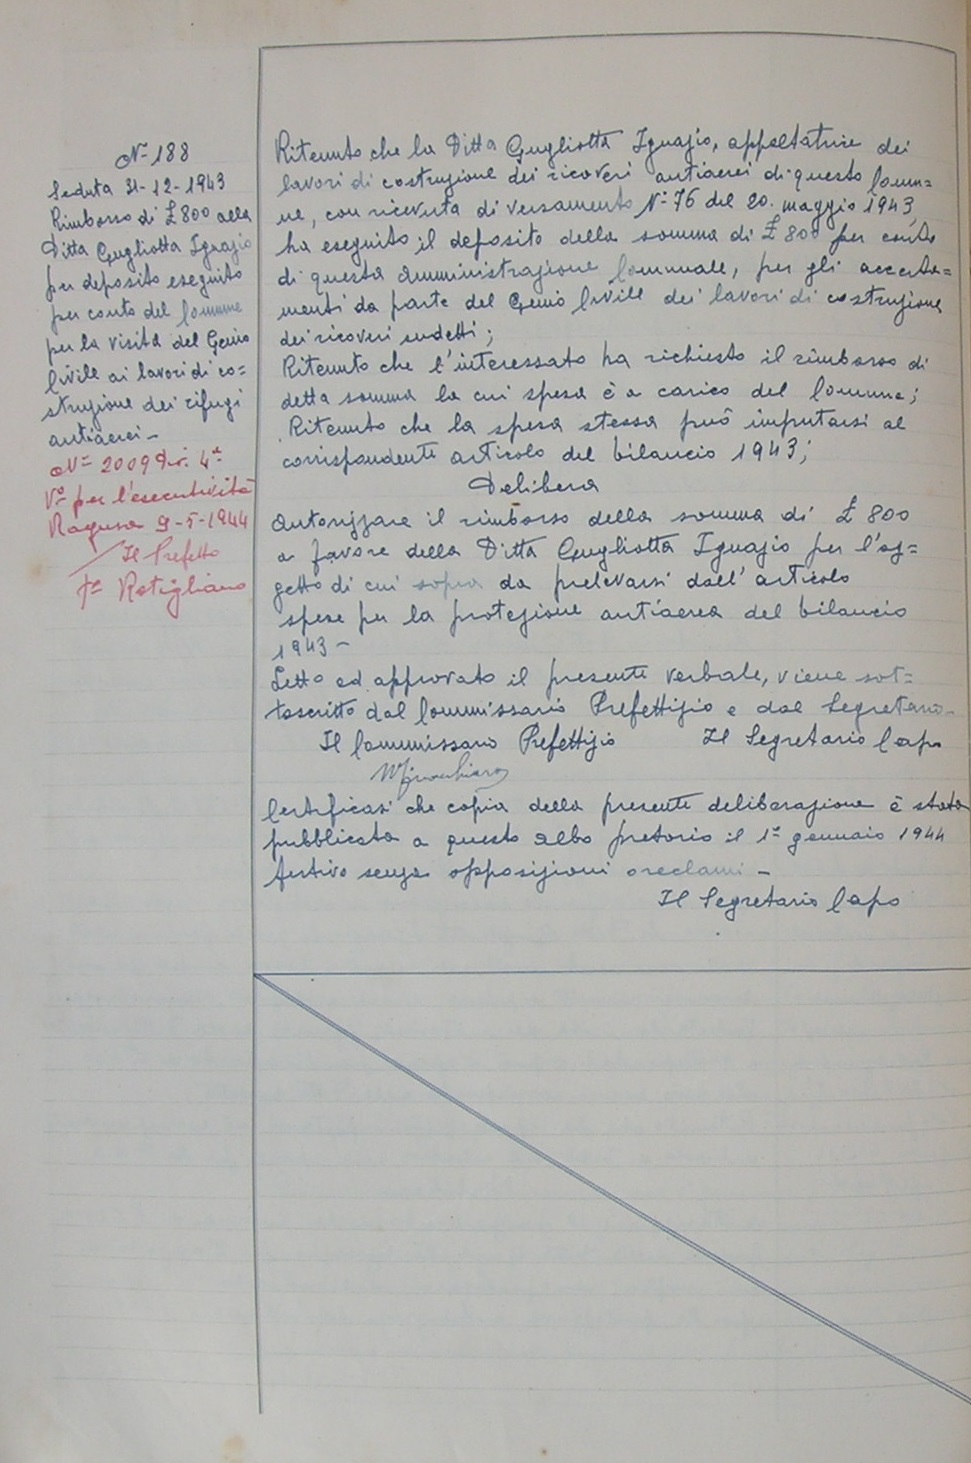 N° 188
Seduta 31-12-1943
Rimborso di £ 800 alla
Ditta Gugliotta Ignazio
per deposito eseguito
per conto del Comune
per la visita del Genio
Civile ai lavori di co=
struzione dei rifugi
antiaerei -
N° 2009 Div. 4ª
V° per l'esecutività
Ragusa 9-5-1944
Il Prefetto
Fº Rotigliano
Ritenuto che la Ditta Gugliotta Ignazio, appaltatrice dei
lavori di costruzione dei ricoveri antiaerei di questo Comu=
ne, con ricevuta di versamento N° 76 del 20. maggio 1943,
ha eseguito il deposito della somma di £ 800 per conto
di questa amministrazione Comunale, per gli accerta=
menti da parte del Genio Civile dei lavori di costruzione
dei ricoveri sudetti;
Ritenuto che l'interessato ha richiesto il rimborso di
detta somma la cui spesa è a carico del Comune;
Ritenuto che la spesa stessa può imputarsi al
corrispondente articolo del bilancio 1943;
Delibera
Autorizzare il rimborso della somma di £ 800
a favore della Ditta Gugliotta Ignazio per l'og=
getto di cui sopra da prelevarsi dall'articolo
spese per la protezione antiaerea del bilancio
1943 -
Letto ed approvato il presente verbale, viene sot=
toscritto dal Commissario Prefettizio e dal Segretario -
Il Commissario Prefettizio Il Segretario Capo
Certificasi che copia della presente deliberazione è stata
pubblicata a questo albo pretorio il 1° gennaio 1944
festivo senza opposizioni o reclami -
Il Segretario Capo